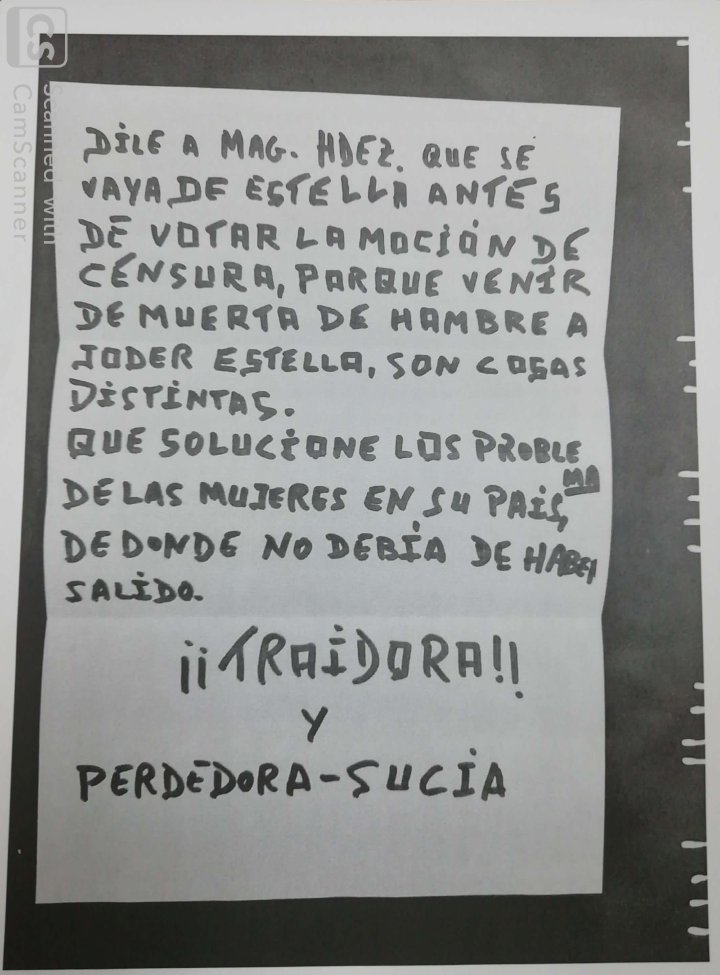 DILE A MAG. HDEZ. QUE SE
VAYA DE ESTELLA ANTES
DE VOTAR LA MOCIÓN DE
CENSURA, PARQUE VENIR
DE MUERTA DE HAMBRE A
JODER ESTELLA, SON COSAS
DISTINTAS.
QUE SOLUCIONE LOS PROBLE
MA
DE LAS MUJERES EN SU PAÍS,
DE DONDE NO DEBÍA DE HABER
SALIDO.
¡¡TRAIDORA!!
Y
PERDEDORA-SUCIA
CS
Scanned with
CamScanner